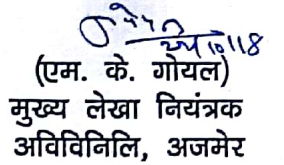 (एम. के. गोयल)
मुख्य लेखा नियंत्रक
अविविनिलि, अजमेर